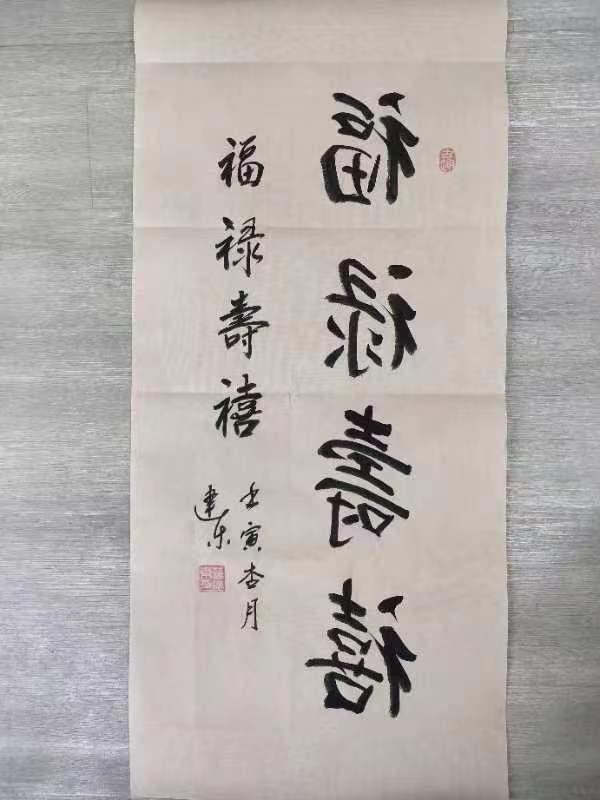 福禄壽禧
福禄壽禧
壬寅杏月
建东